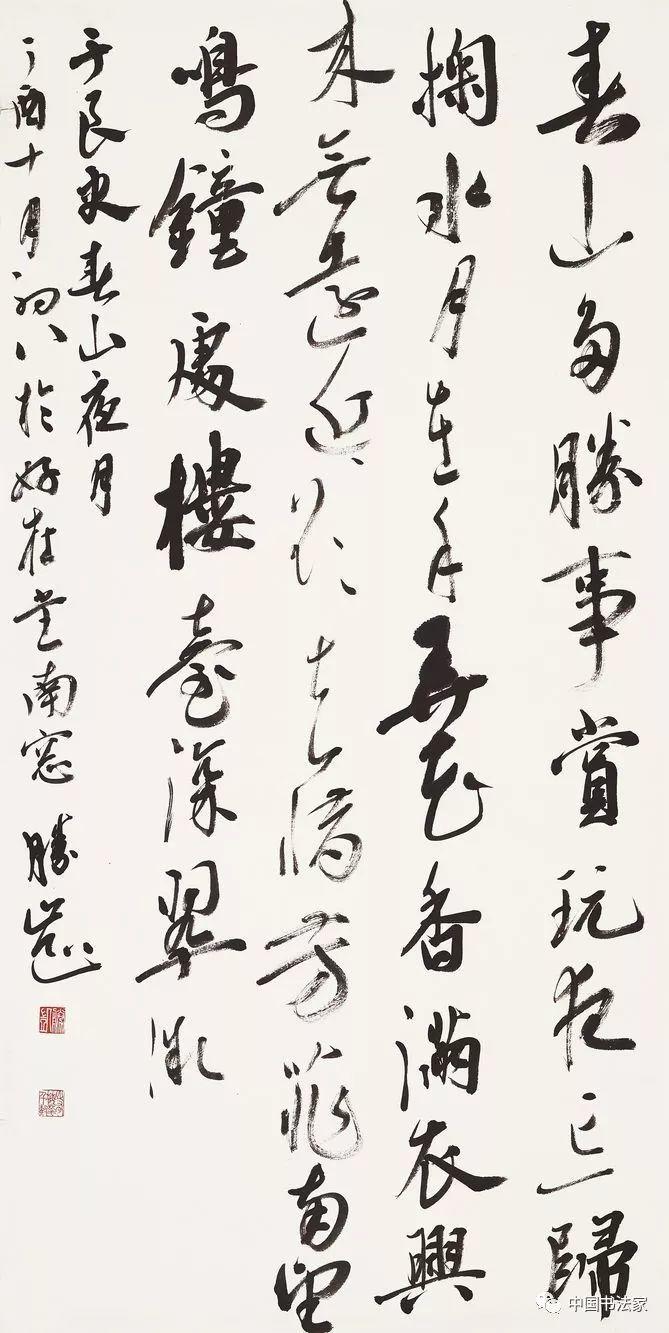 春山多勝事賞玩夜忘歸
掬水月在手弄花香滿衣興
来無遠近欲去惜芳菲南望
鳴鐘處樓臺深翠微
于良史春山夜月
丁酉十月初八於好在堂南窓 勝
中国书法家